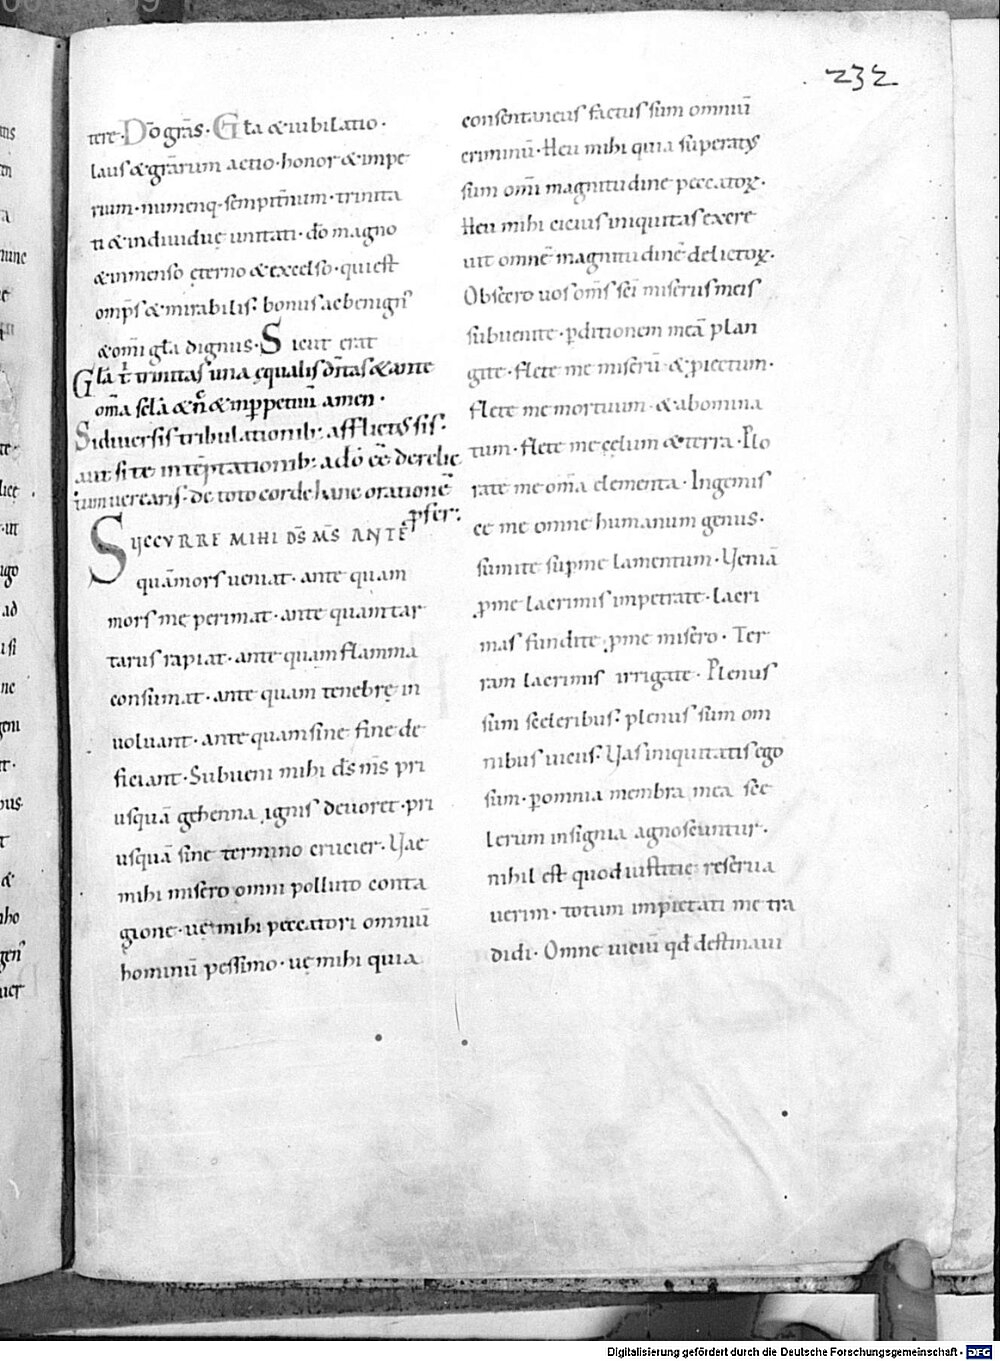 232
tere · Dō grās · Gła & iubilatio ·
laus & grārum actio · honor & impe
rium · numenq; sempit̄num · trinita
ti & indiuiduę unitati · dō magno
& inmenso ęterno & excelso · qui est
omp̄s & mirabilis · bonus ac benign᷒
& om̄i gła dignus · Sicut erat
Głā t̄ trinitas una ęqualis dn̄tas & ante
om̄a sc̄la & n̄c & inp̄petuū amen ·
Si diuersis tribulationib; afflictus sis ·
aut si te in tēptationib; a dō ēē derelic
tum uerearis · de toto corde hanc orationē
p̄fer :
SUCCVRRE MIHI DS̄ MS̄ ANTE
quā mors ueniat · ante quam
mors me perimat · ante quam tar
tarus rapiat · ante quam flamma
consumat · ante quam tenebrę in
uoluant · ante quam sine fine de
ficiant · Subueni mihi ds̄ ms̄ pri
usquā gehenna ignis deuoret · pri
usquā sine termino crucier · Uae
mihi misero omni polluto conta
gione · ue mihi peccatori omniū
hominū pessimo · ue mihi quia
consentaneus factus sum omniū
criminū · Heu mihi quia superatus
sum om̄i magnitudine peccatoꝝ ·
Heu mihi cuius iniquitas excre
uit omnē magnitudinē delictoꝝ ·
Obsecro uos om̄s sc̄i miserius meis
subuenite · p̄ditionem meā plan
gite · flete me miserū & piectum ·
flete me mortuum · & abomina
tum · flete me cęlum & terra · Plo
rate me om̄a elementa · Ingemis
ce me omne humanum genus ·
sumite sup me lamentum · Ueniā
p̄ me lacrimis impetrate · lacri
mas fundite p̄ me misero · Ter
ram lacrimis irrigate · Plenus
sum sceleribus · plenus sum om
nibus uiciis · Uas iniquitatis ego
sum · p omnia membra mea sce
lerum insignia agnoscuntur ·
nihil est quod iustitię reserua
uerim · totum impietati me tra
didi · Omne uiciū qd destinaui
Digitalisierung gefördert durch die Deutsche Forschungsgemeinschaft - DFG